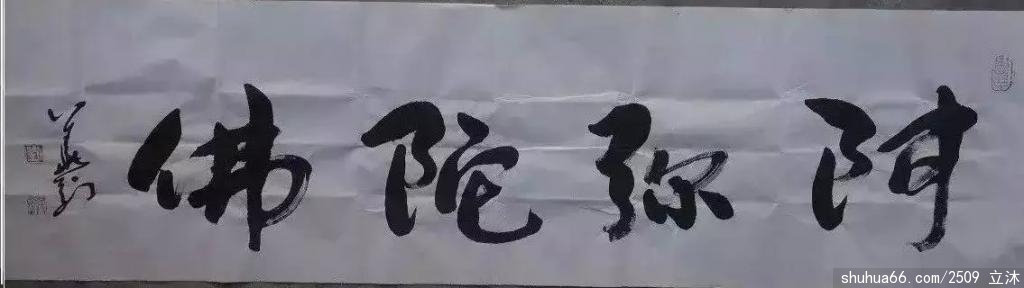 阿弥陀佛
shuhua66.com/2509 立沐